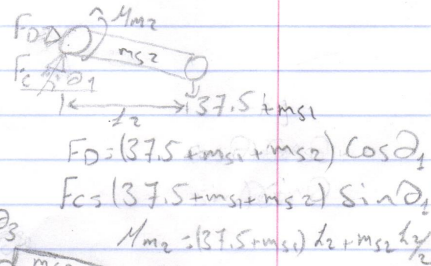 F_D M_m2
m_s2
F_C ∂_1
L_2 37.5+m_s1
F_D=(37.5+m_s1+m_s2) Cos∂_1
F_C=(37.5+m_s1+m_s2) Sin∂_1
∂_3 M_m2=(37.5+m_s1) L_2+m_s2 L_2/2
m_s2